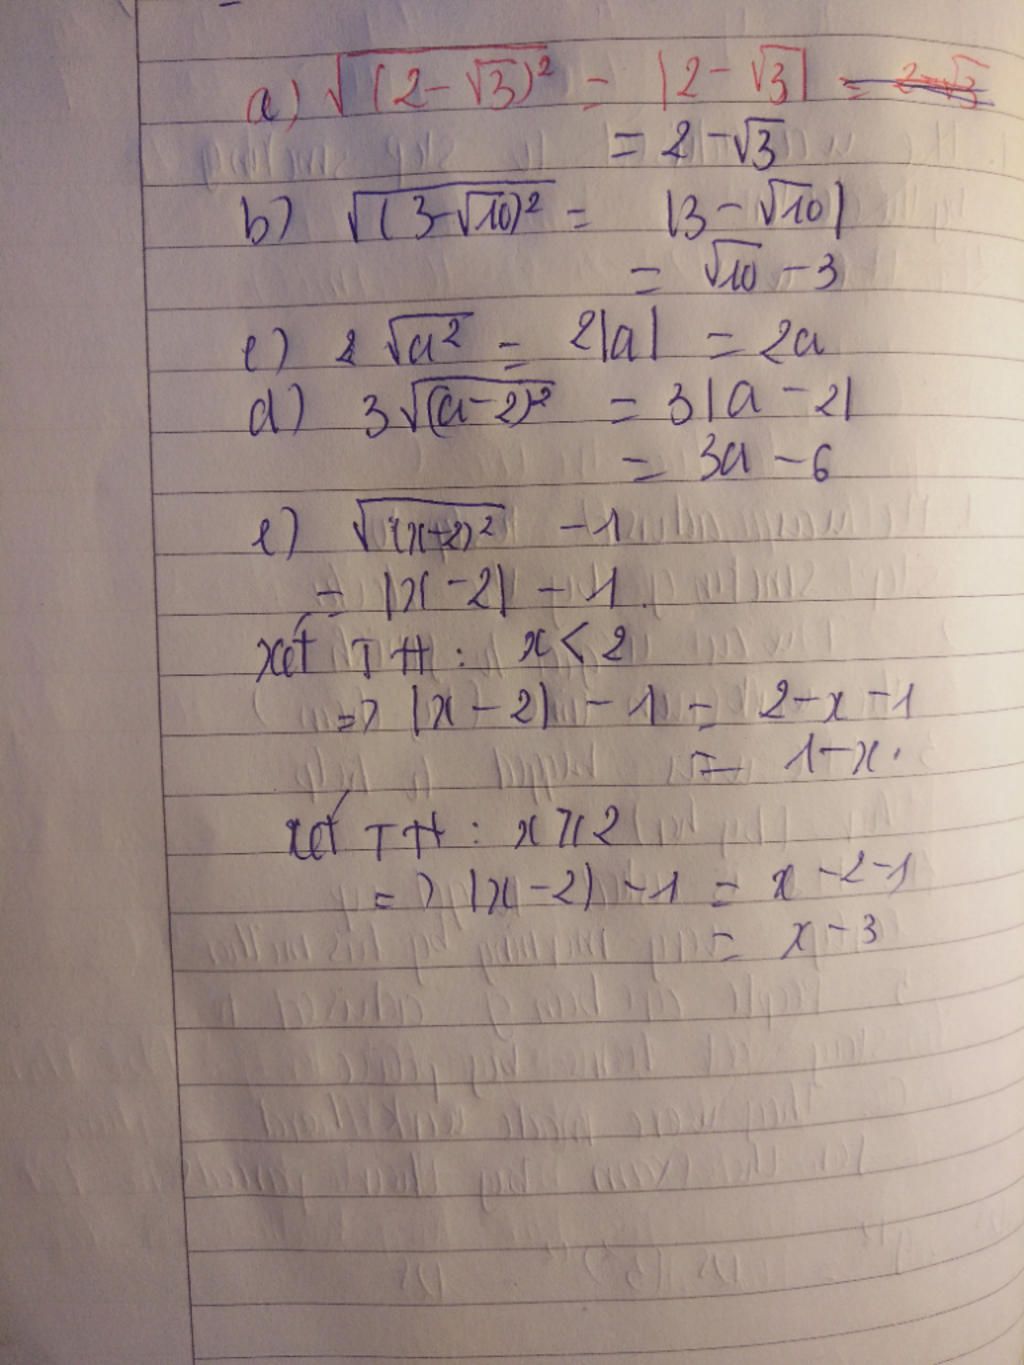 a) √(2-√3)² = |2-√3| = 2-√3
= 2-√3
b) √(3-√10)² = |3-√10|
= √10 -3
c) 2√a² = 2|a| = 2a
d) 3√(a-2)² = 3|a-2|
= 3a-6
e) √(x+2)² -1
= |x-2| -1
xét TH: x<2
=> |x-2| -1 = 2-x-1
= 1-x.
xét TH: x≥2
=> |x-2| -1 = x-2-1
= x-3